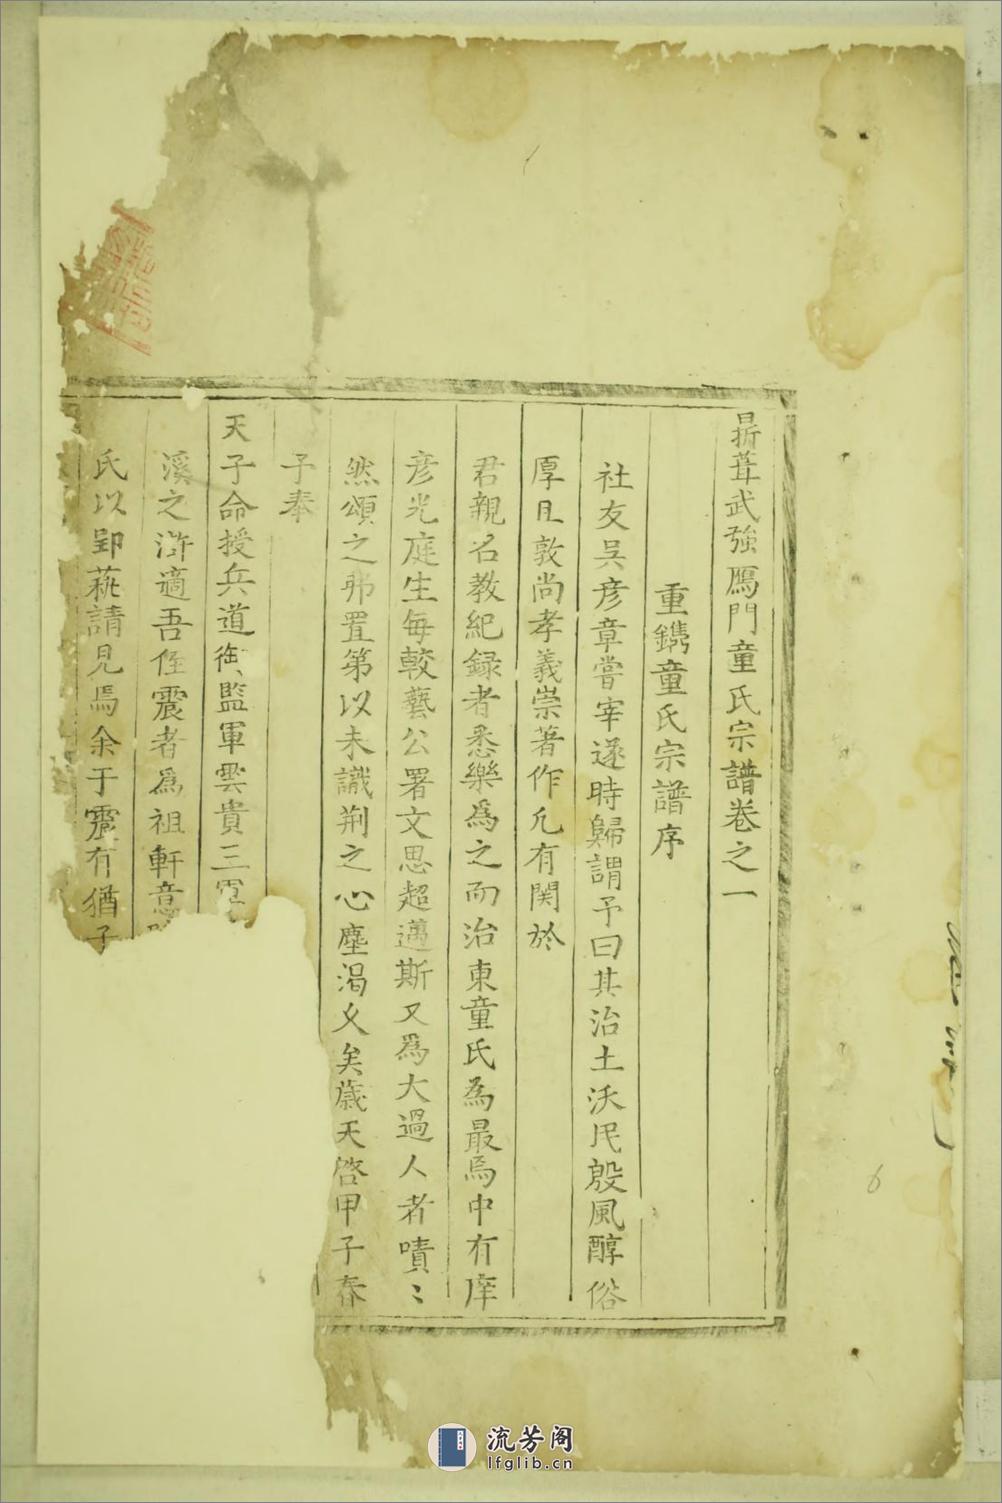 葺武強鴈門童氏宗譜卷之一
重鐫童氏宗譜序
社友吴彦章嘗宰遂時歸謂予曰其治土沃民殷風醇俗
厚且敦尚孝義崇著作凢有関於
君親名教紀録者悉樂為之而治東童氏為最焉中有庠
彦光庭生每較藝公署文思超邁斯又為大過人者嘖〻
然頌之弗置第以未識荆之心塵渴乆矣歲天啓甲子春
予奉
天子命授兵道銜監軍雲貴三
溪之滸適吾侄震者為祖軒意
氏以卽蕘請見焉余于震有猶子
6
流芳阁
lfglib.cn